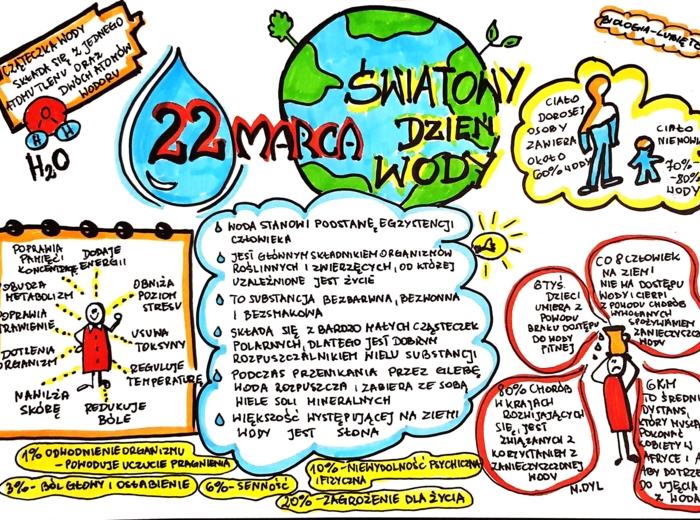 CZĄTECZKA WODY
SKŁADA SIĘ Z JEDNEGO
ATOMU TLENU ORAZ
DWÓCH ATOMÓW
WODORU
O
H H
H₂O
22 MARCA
ŚWIATOWY
DZIEŃ
WODY
BIOLOGIA-LUBIĘ TO
CIAŁO
DOROSŁEJ
OSOBY
ZAWIERA
OKOŁO
60% WODY
CIAŁO
NIEMOW
70%-
-80%
WODY
POPRAWIA
PAMIĘĆ I
KONCENTRACJĘ
DODAJE
ENERGII
OBUDZA
METABOLIZM
OBNIŻA
POZIOM
STRESU
POPRAWIA
TRAWIENIE
USUWA
TOKSYNY
DOTLENIA
ORGANIZM
REGULUJE
TEMPERATURĘ
NAWILŻA
SKÓRĘ
REDUKUJE
BÓLE
WODA STANOWI PODSTAWĘ EGZYSTENCJI
CZŁOWIEKA
JEST GŁÓWNYM SKŁADNIKIEM ORGANIZMÓW
ROŚLINNYCH I ZWIERZĘCYCH, OD KTÓREJ
UZALEŻNIONE JEST ŻYCIE
TO SUBSTANCJA BEZBARWNA, BEZWONNA
I BEZSMAKOWA
SKŁADA SIĘ Z BARDZO MAŁYCH CZĄSTECZEK
POLARNYCH, DLATEGO JEST DOBRYM
ROZPUSZCZALNIKIEM WIELU SUBSTANCJI
PODCZAS PRZENIKANIA PRZEZ GLEBĘ
WODA ROZPUSZCZA I ZABIERA ZE SOBĄ
WIELE SOLI MINERALNYCH
WIĘKSZOŚĆ WYSTĘPUJĄCEJ NA ZIEMI
WODY JEST SŁONA
6 TYŚ.
DZIECI
UMIERA Z
POWODU
BRAKU DOSTĘPU
DO WODY
PITNEJ
CO 8 CZŁOWIEK
NA ZIEMI
NIE MA DOSTĘPU
WODY I CIERPI
Z POWODU CHORÓB
WYWOŁANYCH
SPOŻYWANIEM
ZANIECZYSZCZ
WODY
80% CHORÓB
W KRAJACH
ROZWIJAJĄCYCH
SIĘ, JEST
ZWIĄZANYCH Z
KORZYSTANIEM Z
ZANIECZYSZCZONEJ
WODY
6 KM
TO ŚREDNI
DYSTANS,
KTÓRY MUSZĄ
POKONAĆ
KOBIETY W
AFRYCE I A
ABY DOTRZEĆ
DO UJĘCIA
Z WODĄ
N.DYL
1% ODWODNIENIE ORGANIZMU
- POWODUJE UCZUCIE PRAGNIENIA
3% - BÓL GŁOWY I OSŁABIENIE
6% - SENNOŚĆ
10% - NIEWYDOLNOŚĆ PSYCHICZNA
I FIZYCZNA
20% - ZAGROŻENIE DLA ŻYCIA